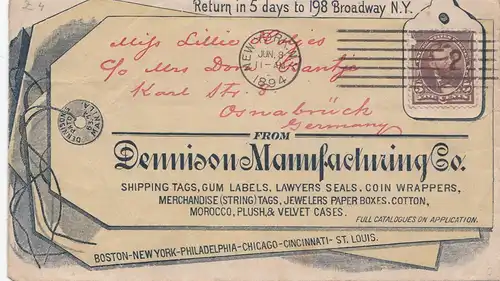 24
Return in 5 days to 198 Broadway N.Y.
Miss Lillie
NEW YORK, N.Y.
JUN. 9
11-AM
1894
C/o Mrs
Karl Str.
Osnabrück
Germany
DENNISON
FROM
Dennison Manufacturing Co.
SHIPPING TAGS, GUM LABELS, LAWYERS SEALS, COIN WRAPPERS,
MERCHANDISE (STRING) TAGS, JEWELERS PAPER BOXES. COTTON,
MOROCCO, PLUSH, & VELVET CASES.
FULL CATALOGUES ON APPLICATION.
BOSTON-NEW-YORK-PHILADELPHIA-CHICAGO-CINCINNATI- ST. LOUIS.